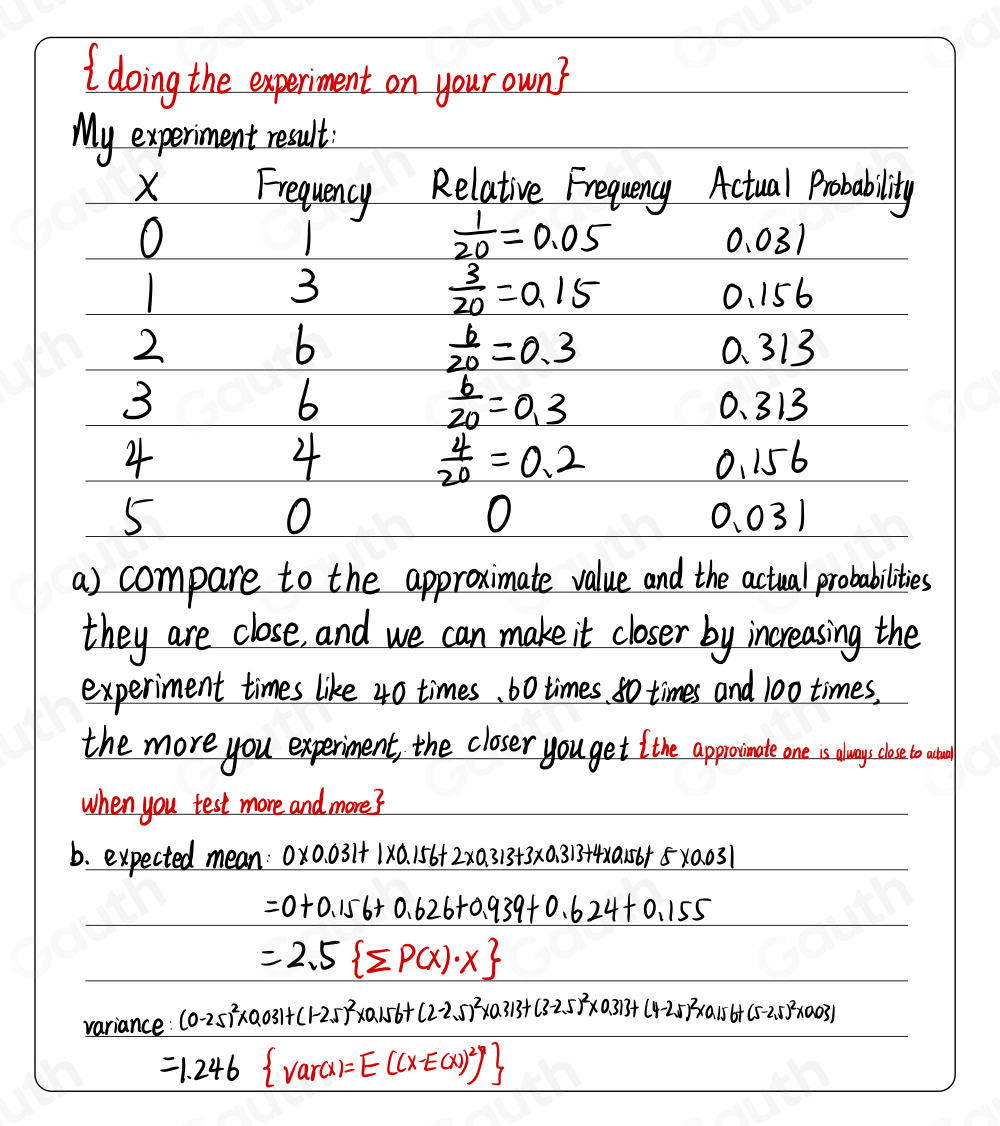 {doing the experiment on your own}
My experiment result:
X Frequency Relative Frequency Actual Probability
0 1 1/20 = 0.05 0.031
1 3 3/20 = 0.15 0.156
2 6 6/20 = 0.3 0.313
3 6 6/20 = 0.3 0.313
4 4 4/20 = 0.2 0.156
5 0 0 0.031
a) compare to the approximate value and the actual probabilities
they are close, and we can make it closer by increasing the
experiment times like 40 times、60 times、80 times and 100 times,
the more you experiment, the closer you get {the approximate one is always close to actual
when you test more and more}
b. expected mean: 0×0.031+ 1×0.156+ 2×0.313+3×0.313+4×0.156+ 5×0.031
=0+0.156+ 0.626+0.939+0.624+0.155
=2.5 {Σ P(X)·X}
variance: (0-2.5)²×0.031+(1-2.5)²×0.156+(2-2.5)²×0.313+(3-2.5)²×0.313+(4-2.5)²×0.156+(5-2.5)²×0.031
=1.246 {var(x)=E[(X-E(X))²]}